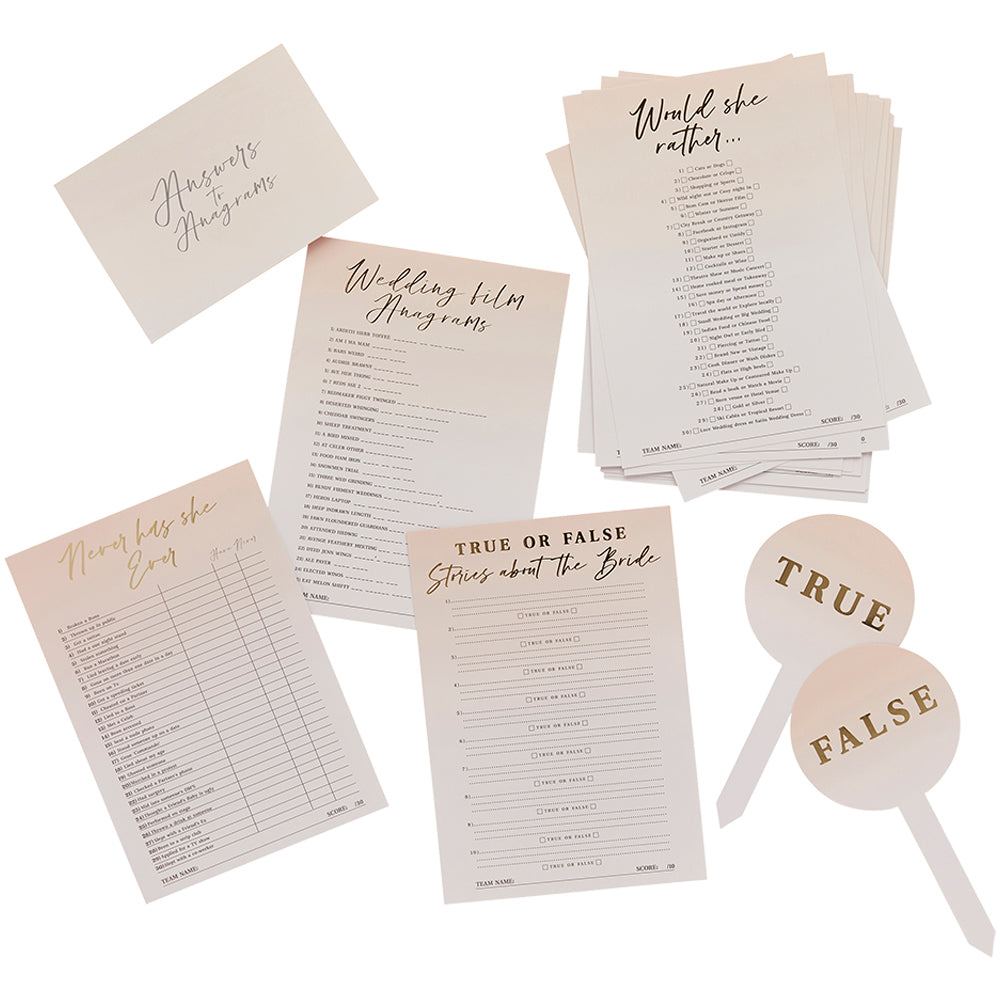 Answers
to
Anagrams
Would she
rather...
1) Cats or Dogs
2) Chocolate or Crisps
3) Shopping or Sports
4) Wild night out or Cosy night In
5) Rom Com or Horror Film
6) Winter or Summer
7) City Break or Country Getaway
8) Facebook or Instagram
9) Organised or Untidy
10) Starter or Dessert
11) Make up or Shoes
12) Cocktails or Wine
13) Theatre Show or Music Concert
14) Home cooked meal or Takeaway
15) Save money or Spend money
16) Spa day or Afternoon
17) Travel the world or Explore locally
18) Small Wedding or Big Wedding
19) Indian Food or Chinese Food
20) Night Owl or Early Bird
21) Piercing or Tattoo
22) Brand New or Vintage
23) Cook Dinner or Wash Dishes
24) Flats or High heels
25) Natural Make Up or Contoured Make Up
26) Read a book or Watch a Movie
27) Barn venue or Hotel Venue
28) Gold or Silver
29) Ski Cabin or Tropical Resort
30) Lace Wedding dress or Satin Wedding Dress
TEAM NAME: SCORE: /30
TEAM NAME:
Wedding film
Anagrams
1) ARDITH HERB TOFFEE
2) AM I MA MAM
3) BARS WEIRD
4) AUDMIE BRAWNE
5) AVE HER THONG
6) 7 REDS SSE 2
7) REDMAKER FIGGY TWINGED
8) DESERTED WHINGING
9) CHEDDAR SWINGERS
10) SHEEP TREATMENT
11) A BIRD MISSED
12) ET CELER OTHER
13) FOOD HAM IRON
14) SNOWMEN TRIAL
15) THREE WED GRINDING
16) BENDY FIRMENT WEDDINGS
17) HEROS LAPTOP
18) DEEP INDRAWN LENGTH
19) FAWN FLOUNDERED GUARDIANS
20) ATTENDED HEDWIG
21) AVENGE FEATHERY MEETING
22) DEED JENN WINGS
23) ALE PAYER
24) ELECTED WINOS
25) EAT MELON SHIFFY
TEAM NAME:
Never has she
Ever
Have Never
1) Broken a Bone
2) Thrown up in public
3) Got a tattoo
4) Had a one night stand
5) Stolen something
6) Run a Marathon
7) Lied leaving a date early
8) Gone on more than one date in a day
9) Been on Tv
10) Got a speeding ticket
11) Cheated on a Partner
12) Lied to a Boss
13) Met a Celeb
14) Been arrested
15) Sent a nude photo
16) Stood someone up on a date
17) Gone Commando
18) Lied about my age
19) Ghosted someone
20) Marched in a protest
21) Checked a Partner's phone
22) Had surgery
23) Slid into someone's DM'S
24) Thought a Friend's Baby is ugly
25) Performed on stage
26) Thrown a drink at someone
27) Slept with a Friend's Ex
28) Been to a strip club
29) Applied for a TV show
30) Slept with a co-worker
TEAM NAME: SCORE: /30
TRUE OR FALSE
Stories about the Bride
1)
TRUE OR FALSE
2)
TRUE OR FALSE
3)
TRUE OR FALSE
4)
TRUE OR FALSE
5)
TRUE OR FALSE
6)
TRUE OR FALSE
7)
TRUE OR FALSE
8)
TRUE OR FALSE
9)
TRUE OR FALSE
10)
TRUE OR FALSE
TEAM NAME: SCORE: /10
TRUE
FALSE